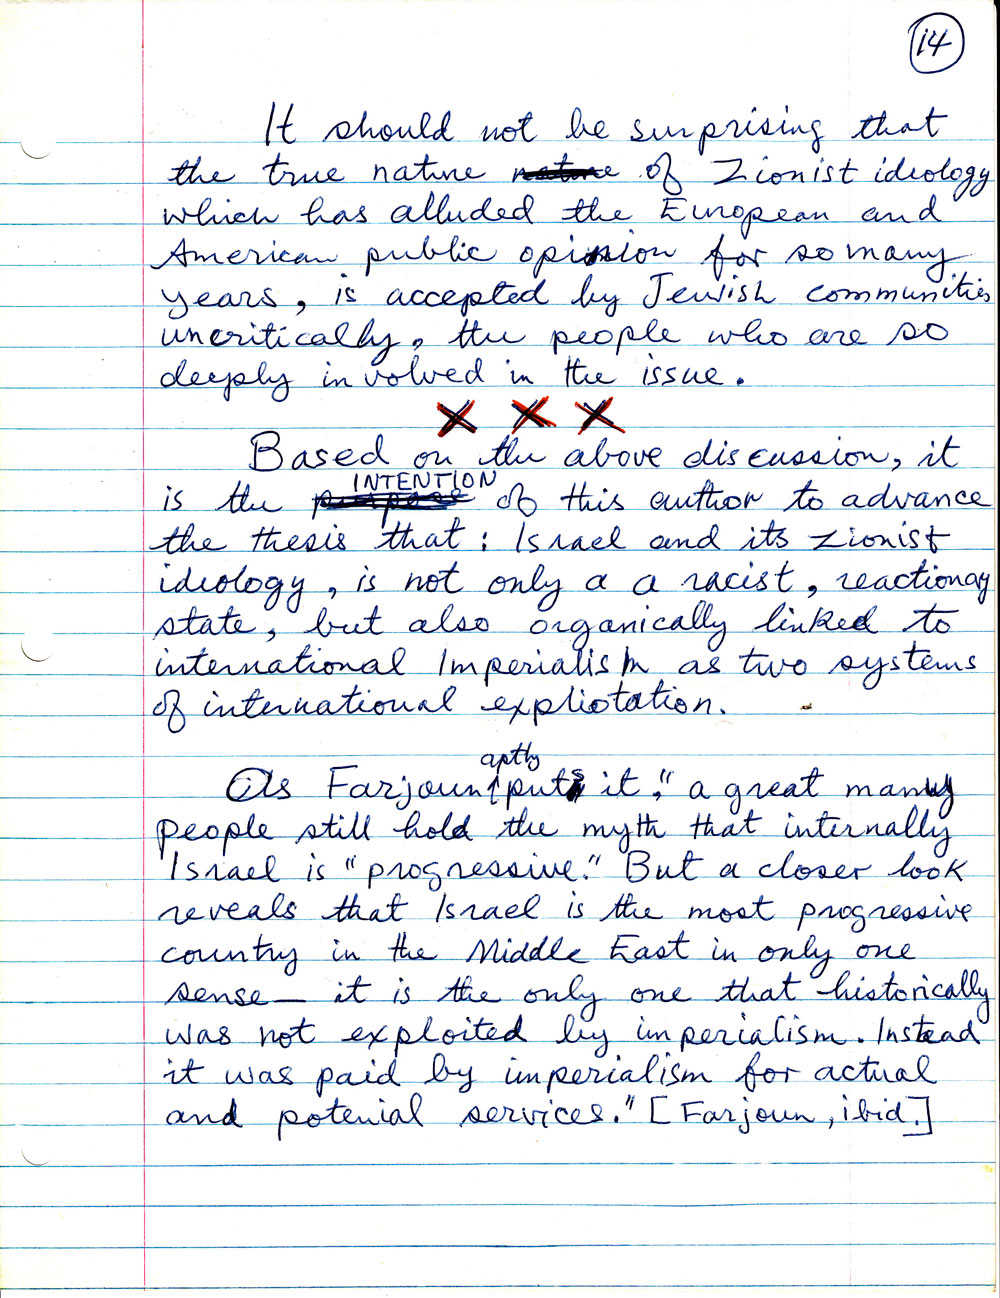 14
It should not be surprising that
the true nature nature of Zionist ideology
which has alluded the European and
American public opinion for so many
years, is accepted by Jewish communities
uncritically, the people who are so
deeply involved in the issue.
X X X
Based on the above discussion, it
INTENTION
is the purpose of this author to advance
the thesis that: Israel and its Zionist
ideology, is not only a a racist, reactionay
state, but also organically linked to
international Imperialism as two systems
of international expliotation.
aptly
As Farjoun puts it, "a great many
people still hold the myth that internally
Israel is "progressive." But a closer look
reveals that Israel is the most progressive
country in the Middle East in only one
sense— it is the only one that historically
was not exploited by imperialism. Instead
it was paid by imperialism for actual
and potenial services." [Farjoun, ibid.]